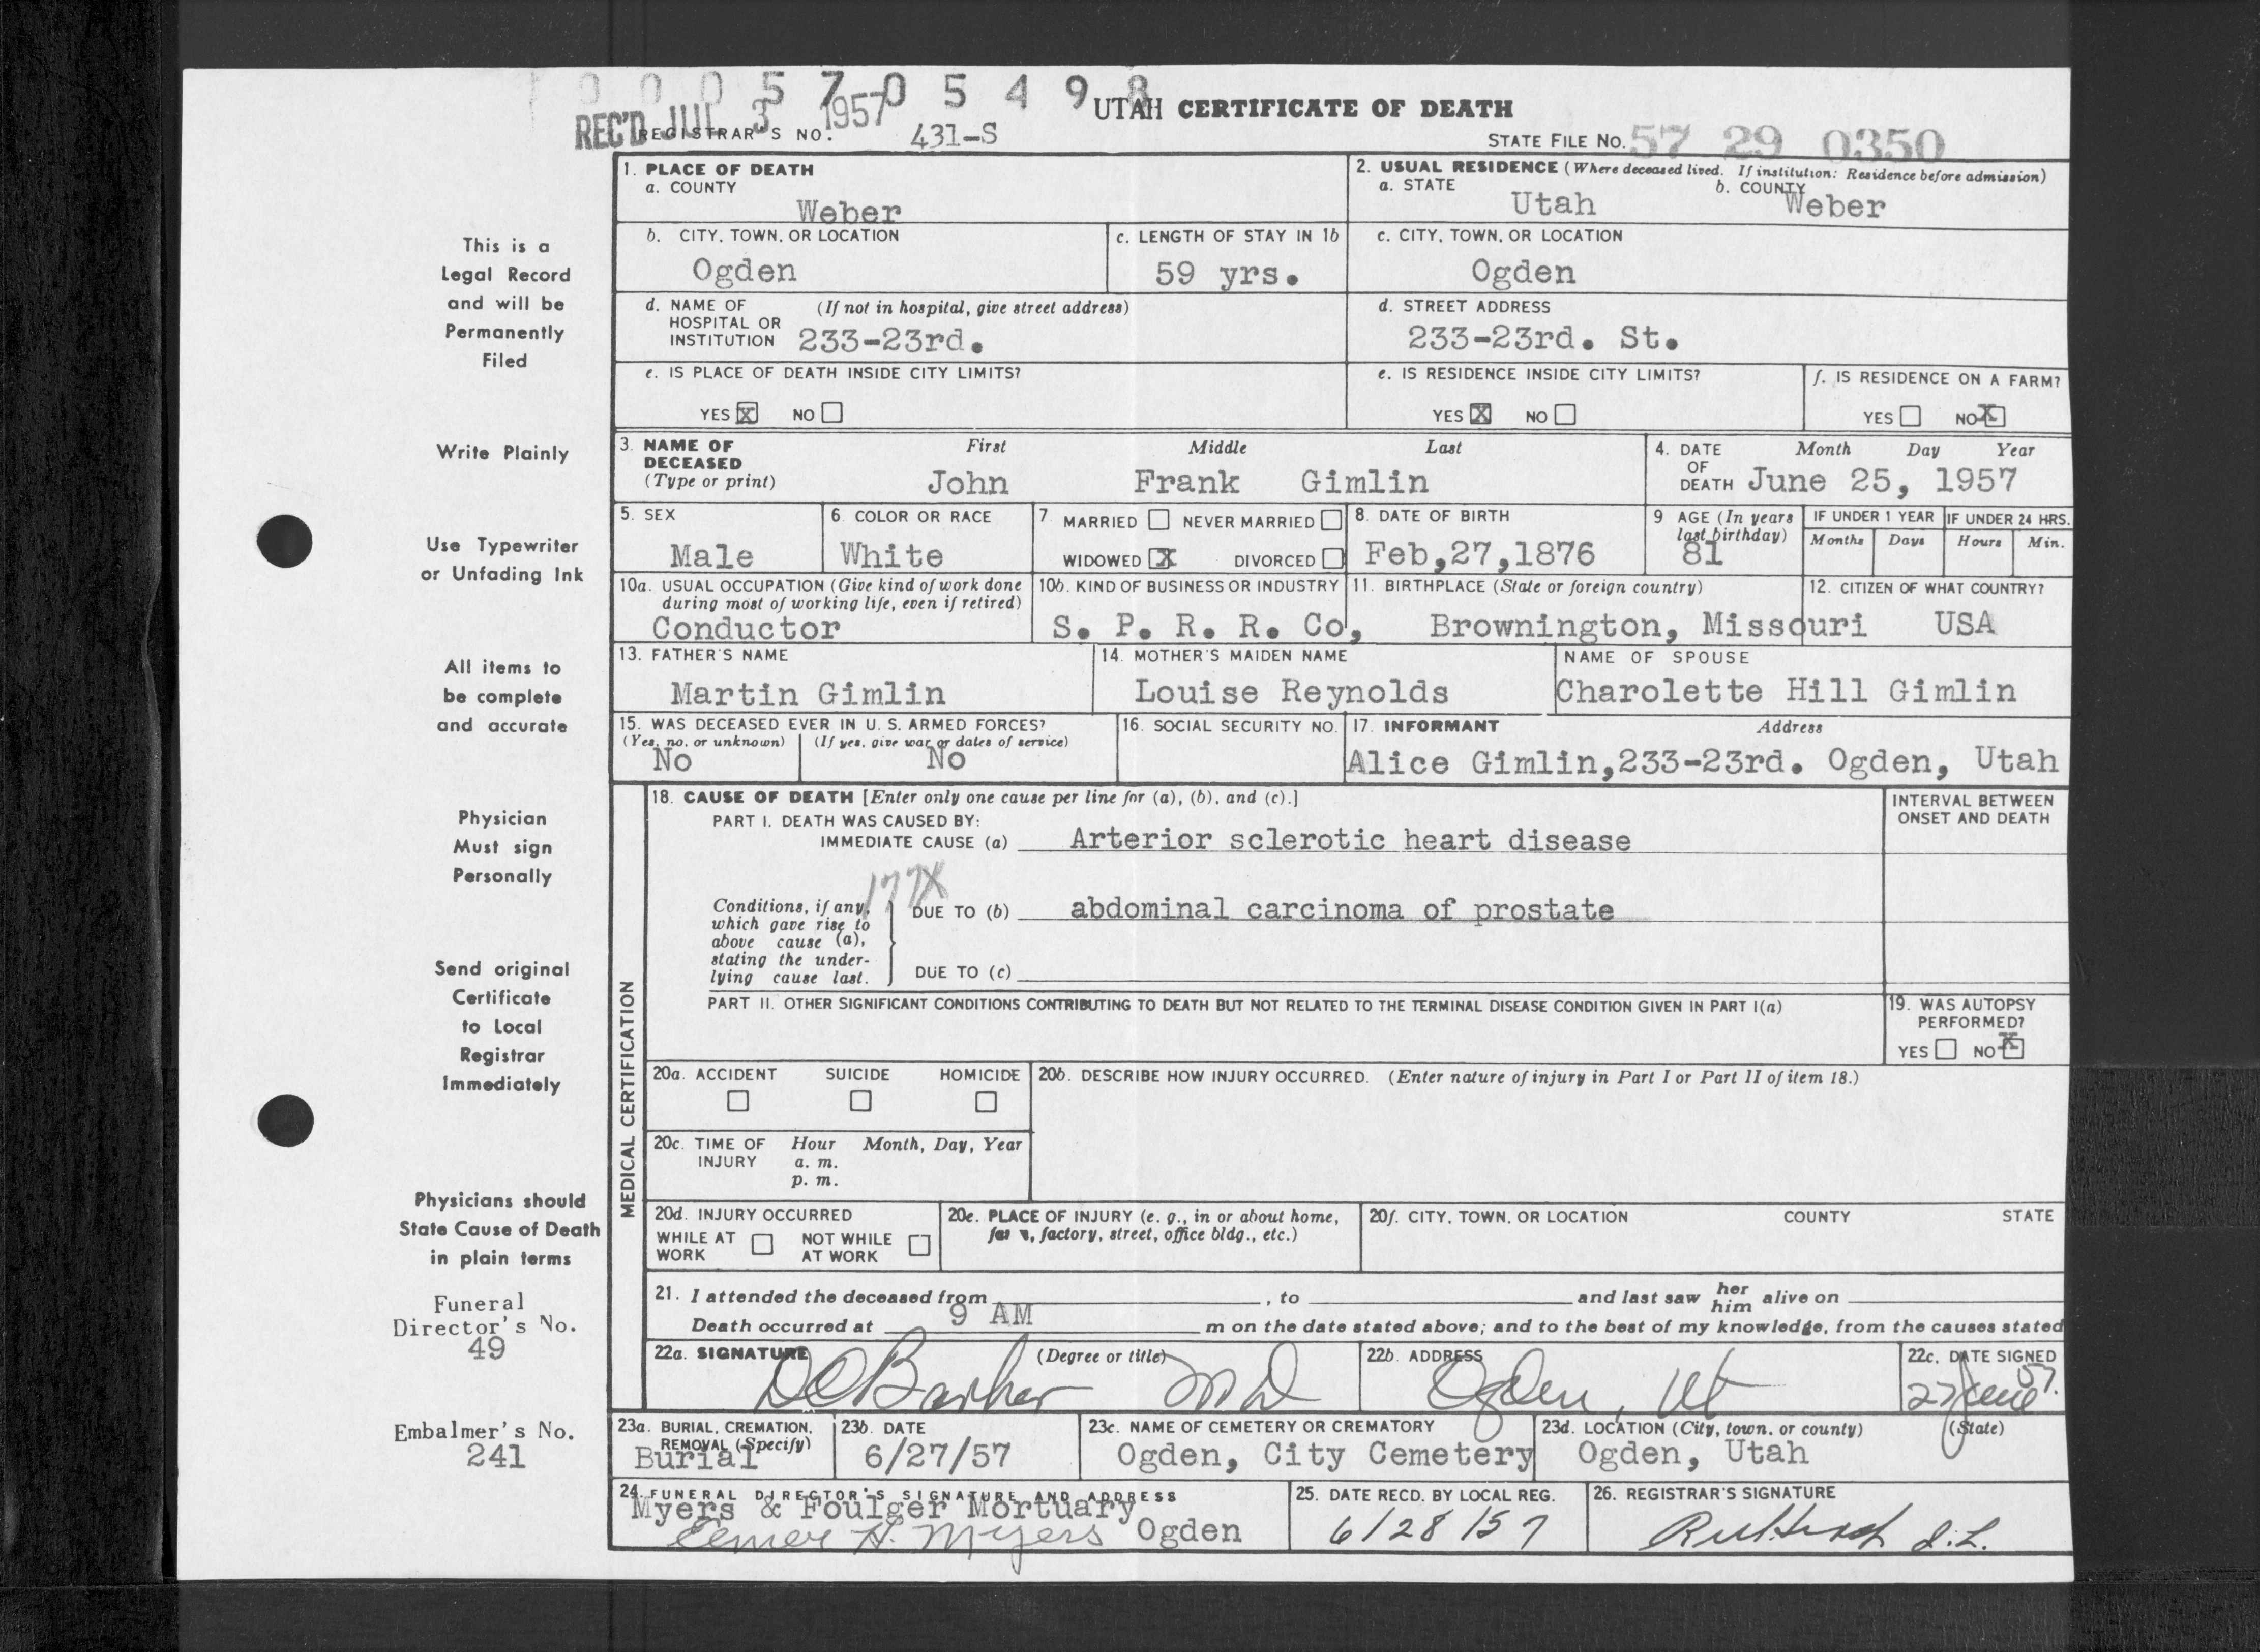 0 0 0 5 7 0 5 4 9 8
REC'D JUL 3 1957
REGISTRAR'S NO. 431-S
UTAH CERTIFICATE OF DEATH
STATE FILE NO. 57 29 0350
1. PLACE OF DEATH
a. COUNTY
Weber
2. USUAL RESIDENCE (Where deceased lived. If institution: Residence before admission)
a. STATE b. COUNTY
Utah Weber
b. CITY, TOWN, OR LOCATION
Ogden
c. LENGTH OF STAY IN 1b
59 yrs.
c. CITY, TOWN, OR LOCATION
Ogden
d. NAME OF (If not in hospital, give street address)
HOSPITAL OR
INSTITUTION 233-23rd.
d. STREET ADDRESS
233-23rd. St.
e. IS PLACE OF DEATH INSIDE CITY LIMITS?
YES X NO
e. IS RESIDENCE INSIDE CITY LIMITS?
YES X NO
f. IS RESIDENCE ON A FARM?
YES NO X
3. NAME OF First Middle Last
DECEASED
(Type or print) John Frank Gimlin
4. DATE Month Day Year
OF
DEATH June 25, 1957
5. SEX
Male
6. COLOR OR RACE
White
7 MARRIED NEVER MARRIED
WIDOWED X DIVORCED
8. DATE OF BIRTH
Feb,27,1876
9 AGE (In years
last birthday)
81
IF UNDER 1 YEAR
Months Days
IF UNDER 24 HRS.
Hours Min.
10a. USUAL OCCUPATION (Give kind of work done
during most of working life, even if retired)
Conductor
10b. KIND OF BUSINESS OR INDUSTRY
S. P. R. R. Co,
11. BIRTHPLACE (State or foreign country)
Brownington, Missouri
12. CITIZEN OF WHAT COUNTRY?
USA
13. FATHER'S NAME
Martin Gimlin
14. MOTHER'S MAIDEN NAME
Louise Reynolds
NAME OF SPOUSE
Charolette Hill Gimlin
15. WAS DECEASED EVER IN U. S. ARMED FORCES?
(Yes, no, or unknown) (If yes, give war or dates of service)
No No
16. SOCIAL SECURITY NO.
17. INFORMANT Address
Alice Gimlin,233-23rd. Ogden, Utah
MEDICAL CERTIFICATION
18. CAUSE OF DEATH [Enter only one cause per line for (a), (b), and (c).]
PART I. DEATH WAS CAUSED BY:
IMMEDIATE CAUSE (a) Arterior sclerotic heart disease
INTERVAL BETWEEN
ONSET AND DEATH
177X
Conditions, if any,
which gave rise to
above cause (a),
stating the under-
lying cause last.
DUE TO (b) abdominal carcinoma of prostate
DUE TO (c)
PART II. OTHER SIGNIFICANT CONDITIONS CONTRIBUTING TO DEATH BUT NOT RELATED TO THE TERMINAL DISEASE CONDITION GIVEN IN PART I(a)
19. WAS AUTOPSY
PERFORMED?
YES NO X
20a. ACCIDENT SUICIDE HOMICIDE
20b. DESCRIBE HOW INJURY OCCURRED. (Enter nature of injury in Part I or Part II of item 18.)
20c. TIME OF Hour Month, Day, Year
INJURY a. m.
p. m.
20d. INJURY OCCURRED
WHILE AT NOT WHILE
WORK AT WORK
20e. PLACE OF INJURY (e. g., in or about home,
factory, street, office bldg., etc.)
20f. CITY, TOWN, OR LOCATION COUNTY STATE
21. I attended the deceased from , to and last saw her him alive on
Death occurred at 9 AM m on the date stated above; and to the best of my knowledge, from the causes stated
22a. SIGNATURE (Degree or title)
DC Barker MD
22b. ADDRESS
Ogden, Ut
22c. DATE SIGNED
27 June 57.
23a. BURIAL, CREMATION,
REMOVAL (Specify)
Burial
23b. DATE
6/27/57
23c. NAME OF CEMETERY OR CREMATORY
Ogden, City Cemetery
23d. LOCATION (City, town, or county) (State)
Ogden, Utah
24. FUNERAL DIRECTOR'S SIGNATURE AND ADDRESS
Myers & Foulger Mortuary
Elmer H. Myers Ogden
25. DATE RECD. BY LOCAL REG.
6/28/57
26. REGISTRAR'S SIGNATURE
This is a
Legal Record
and will be
Permanently
Filed
Write Plainly
Use Typewriter
or Unfading Ink
All items to
be complete
and accurate
Physician
Must sign
Personally
Send original
Certificate
to Local
Registrar
Immediately
Physicians should
State Cause of Death
in plain terms
Funeral
Director's No.
49
Embalmer's No.
241